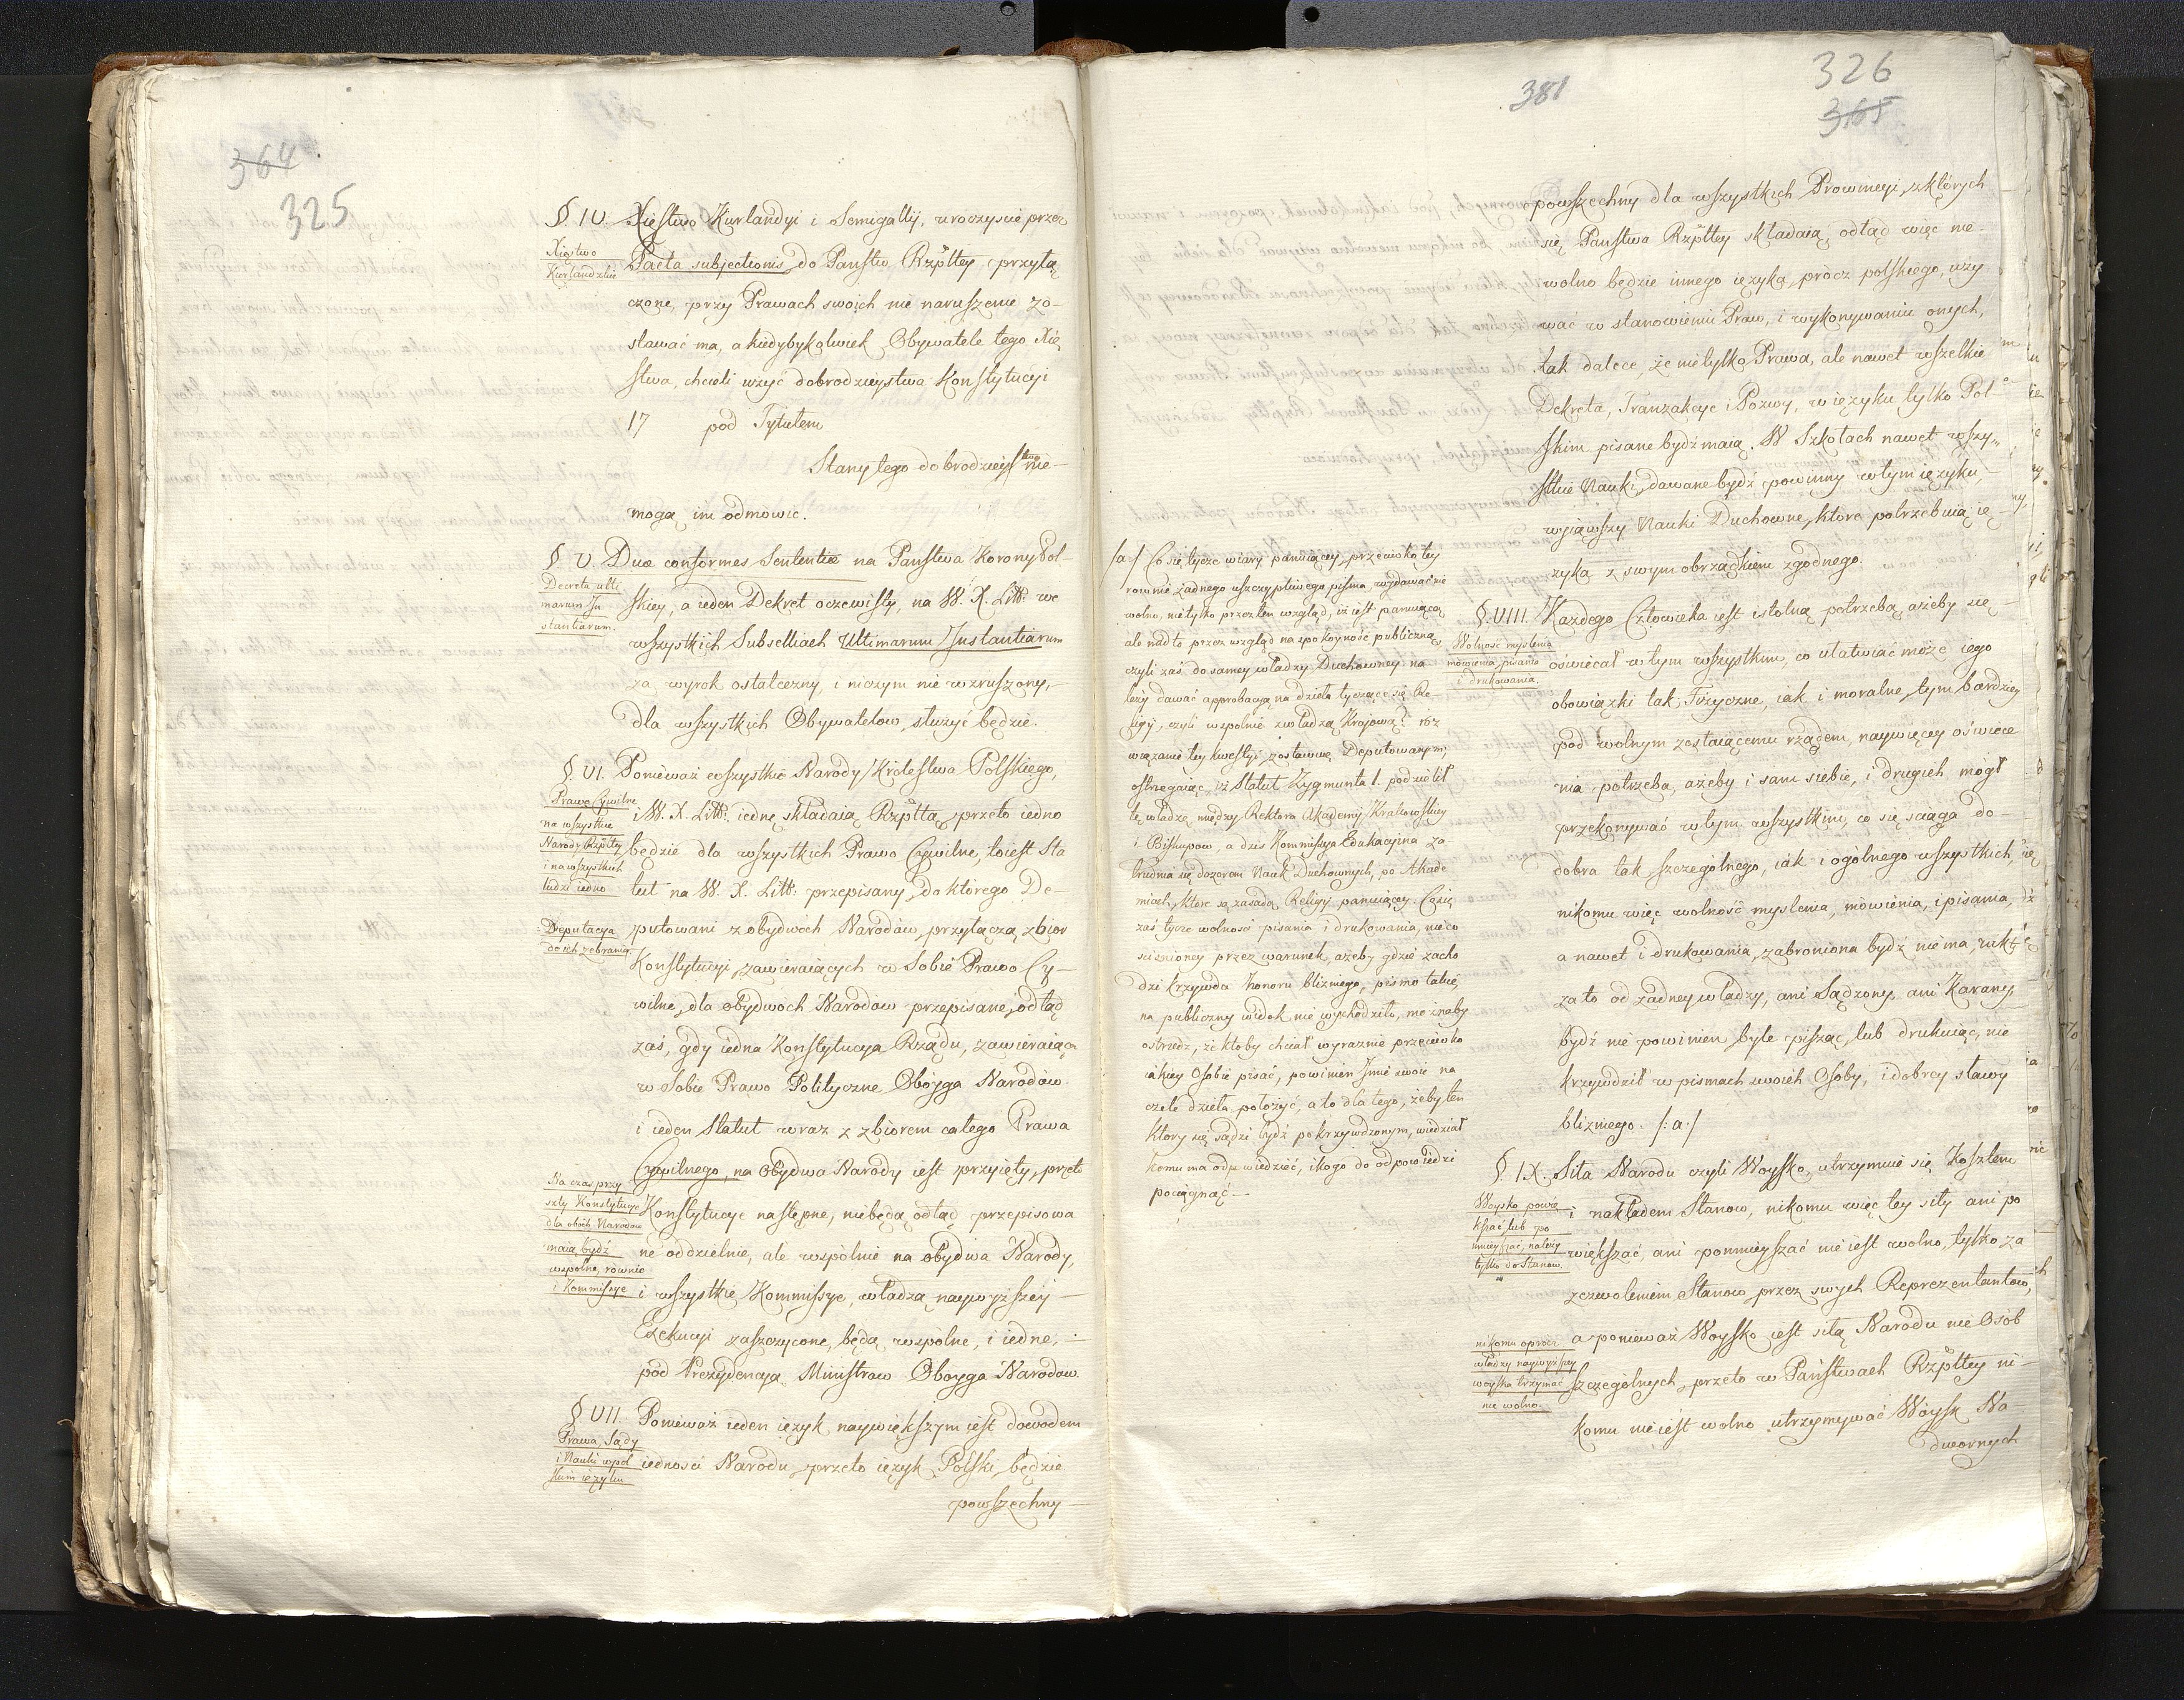 364
325
§. IV. Xięstwo Kurlandyi i Semigallij, uroczyście przez
Xięstwo
Kurlandzkie
Pacta subjectionis do Państw Rzpltey przyłą
czone, przy Prawach swoich nie naruszenie zo-
stawać ma, a kiedybykolwiek Obywatele tego Xię
stwa, chcieli użyć dobrodzieystwa Konstytucyi
17 pod Tytułem
Stany tego dobrodzieystwa nie-
mogą im odmowić.
§ V. Duæ conformes Sententiæ na Państwa Korony Pol-
Decreta ulti
marum In
stantiarum.
skiey, a ieden Dekret oczewisty, na W. X. Litt: we
wszystkich Subselliach Ultimarum Instantiarum
za wyrok ostateczny, i niczym nie wzruszony,-
dla wszystkich Obywatelow, służyć będzie.
§ VI. Ponieważ wszystkie Narody Krolestwa Polskiego,
Prawo Cywilne
na wszystkie
Narody Rzpltey
i na wszystkich
ludzi iedno
i W. X. Litt: iednę składaią Rzpltą, przeto iedno
będzie dla wszystkich Prawo Cywilne, toiest Sta
tut na W. X. Litt: przepisany, do ktorego De-
Deputacya
do ich zebrania
putowani z obydwoch Narodów, przyłączą zbior
Konstytucyi zawieraiących w Sobie Prawo Cy-
wilne, dla obydwoch Narodow przepisane, odtąd
zaś, gdy iedna Konstytucya Rządu, zawieraiąca
w Sobie Prawo Polityczne Oboyga Narodów
i ieden Statut wraz z zbiorem całego Prawa
Cywilnego, na obydwa Narody iest przyięty, przeto
Na czas przy
szły Konstytucye
dla oboch Narodow
maią bydź
wspolne, rownie
i Kommissye
Konstytucye następne, niebędą odtąd przepisowa
ne oddzielnie, ale wspólnie na obydwa Narody,
i wszystkie Kommissye, władzą naywyższéy-
Exekucyi zaszczycone, będą wspólne, i iedne,-
pod Prezydencyą Ministrow Oboyga Narodow.
§ VII. Ponieważ ieden ięzyk naywiększym iest dowodem
Prawa, Sądy
i Nauki w pol
skim ięzyku
iedności Narodu, przeto ięzyk Polski będzie
powszechny-
381
326
365
powszechny dla wszystkich Prowincyi, z których
się Państwa Rzpltey składaią, odtąd więc nie-
wolno będzie innego ięzyka, prócz polskiego, uży
wać w stanowieniu Praw, i wykonywaniu onych,
tak dalece że nietylko Prawa, ale nawet wszelkie
Dekreta, Tranzakcye i Pozwy, w ięzyku tylko Pol
skim pisane bydź maią. W Szkołach nawet wszy
stkie Nauki, dawane bydź powinny w tym ięzyku,-
wyiąwszy Nauki Duchowne, ktore potrzebuią ię-
zyka z swym obrządkiem zgodnego.
/a:/ Co się tycze wiary panuiącey, przeciwko tey
rownie żadnego uszczypliwego pisma wydawać nie
wolno, nie tylko przez ten wzgląd, iż iest panuiącą
ale nadto przez wzgląd na spokoyność publiczną
czyli zaś do samey władzy Duchowney na
leży dawać approbacyą na dzieła tyczące się Re
ligij, czyli wspolnie z władzą Kraiową? roz
wiązanie tey kwestyi zostawuię Deputowanym
ostrzegaiąc, iż Statut Zygmunta I. podzielił
tę władzę między Rektora Akademij Krakowskiey
i Biskupow, a dziś Kommissya Edukacyina za
trudnia się dozorem Nauk Duchownych, po Akade
miach, ktore są zasadą Religij panuiącey. Co się
zaś tycze wolności pisania i drukowania, nieco
ścisnioney przez warunek, ażeby gdzie zacho
dzi krzywda honoru bliźniego, pismo takie,
na publiczny widok nie wychodziło, możnaby
ostrzedz, że ktoby chciał wyraźnie przeciwko
iakiey Osobie pisać, powinien Imie swoie na
czele dzieła położyć, a to dla tego, żeby ten
ktory się sądzi bydź pokrzywdzonym, wiedział
komu ma odpowiedzieć, i kogo do odpowiedzi
pociągnąć-
§. VIII. Każdego Człowieka iest istotną potrzebą, ażeby się-
Wolność myślenia
mówienia, pisania
i drukowania.
oświecał w tym wszystkim, co ułatwiać może iego
obowiązki tak Fizyczne, iak i moralne, tym bardziey
pod wolnym zostaiącemu rządem, naywięcey oświece
nia potrzeba, ażeby i sam siebie, i drugich mógł
przekonywać w tym wszystkim, co się ściąga do-
dobra tak szczególnego, iák i ogólnego wszystkich,
nikomu więc wolność myslenia, mówienia, i pisania,
a nawet i drukowania, zabroniona bydź nie ma, nikt
za to od żadney władzy, ani Sądzony, ani Karany,
bydź nie powinien, byle pisząc, lub drukuiąc, nie
krzywdził w pismach swoich Osoby, i dobrey sławy
bliźniego. /:a:/
§. IX. Siła Narodu czyli Woysko, utrzymuie się Kosztem
Woysko powię
kszać lub po
mnieyszać, należy
tylko do Stanow.
i nakładem Stanow, nikomu więc tey siły ani po
większać, ani pomnieyszać nie iest wolno, tylko za
zezwoleniem Stanow, przez swych Reprezentantow,
nikomu oprocz
władzy naywyższey
woyska trzymać
nie wolno.
a ponieważ Woysko iest siłą Narodu nie Osób
szczególnych, przeto w Państwach Rzpltey ni-
komu nie iest wolno utrzymywać Woysk Na-
dwornych